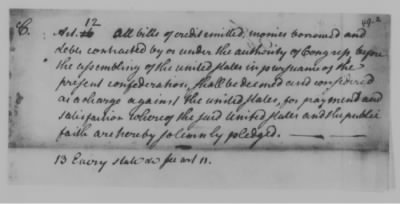 C.
12
Art. 16 All bills of credit emitted, monies borrowed and
debts contracted by or under the authority of Congress before
the assembling of the united states in pursuance of the
present confederation, shall be deemed and considered
as a charge against the united states, for payment and
satisfaction whereof the said United states and the public
faith are hereby solemnly pledged.
13 Every state &c see art 11.